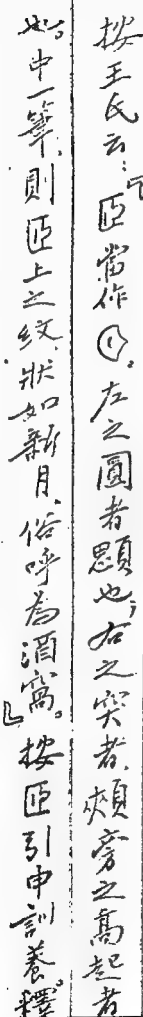 按王氏云:『𦣞當作①。左之圓者顋也;右之突者,頰旁之高起者
也。中一筆,則𦣞上之紋,狀如新月,俗呼為酒窩。』按𦣞引申訓養釋